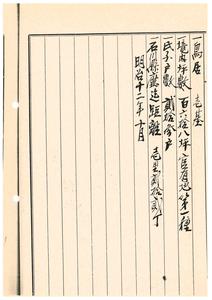 一鳥居　壱基
一境内坪数　百六拾八坪　官有地第一種
一氏子戸数　貳拾参戸
一石川県庁迄距離　壱里貳拾貳丁
明治十二年十月